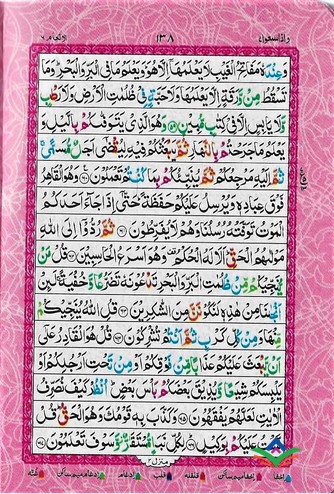 واذاسمعوا٧ ١٣٨ الانعام٦
وَعِنْدَهٗ مَفَاتِحُ الْغَيْبِ لَا يَعْلَمُهَاۤ اِلَّا هُوَ ؕ وَيَعْلَمُ مَا فِی الْبَرِّ وَالْبَحْرِ ؕ وَمَا
تَسْقُطُ مِنْ وَّرَقَةٍ اِلَّا يَعْلَمُهَا وَلَا حَبَّةٍ فِیْ ظُلُمٰتِ الْاَرْضِ وَلَا رَطْبٍ
وَّلَا يَابِسٍ اِلَّا فِیْ كِتٰبٍ مُّبِيْنٍ ﴿۵۹﴾ وَهُوَ الَّذِیْ يَتَوَفّٰىكُمْ بِالَّيْلِ وَ
يَعْلَمُ مَا جَرَحْتُمْ بِالنَّهَارِ ثُمَّ يَبْعَثُكُمْ فِيْهِ لِيُقْضٰۤى اَجَلٌ مُّسَمًّى ۚ
ثُمَّ اِلَيْهِ مَرْجِعُكُمْ ثُمَّ يُنَبِّئُكُمْ بِمَا كُنْتُمْ تَعْمَلُوْنَ ﴿۶۰﴾ وَهُوَ الْقَاهِرُ
فَوْقَ عِبَادِهٖ وَيُرْسِلُ عَلَيْكُمْ حَفَظَةً ؕ حَتّٰۤى اِذَا جَآءَ اَحَدَكُمُ
الْمَوْتُ تَوَفَّتْهُ رُسُلُنَا وَهُمْ لَا يُفَرِّطُوْنَ ﴿۶۱﴾ ثُمَّ رُدُّوْۤا اِلَى اللّٰهِ
مَوْلٰىهُمُ الْحَقِّ ؕ اَلَا لَهُ الْحُكْمُ ۫ وَهُوَ اَسْرَعُ الْحٰسِبِيْنَ ﴿۶۲﴾ قُلْ مَنْ
يُّنَجِّيْكُمْ مِّنْ ظُلُمٰتِ الْبَرِّ وَالْبَحْرِ تَدْعُوْنَهٗ تَضَرُّعًا وَّخُفْيَةً ۚ لَئِنْ
اَنْجٰىنَا مِنْ هٰذِهٖ لَنَكُوْنَنَّ مِنَ الشّٰكِرِيْنَ ﴿۶۳﴾ قُلِ اللّٰهُ يُنَجِّيْكُمْ
مِّنْهَا وَمِنْ كُلِّ كَرْبٍ ثُمَّ اَنْتُمْ تُشْرِكُوْنَ ﴿۶۴﴾ قُلْ هُوَ الْقَادِرُ عَلٰۤى
اَنْ يَّبْعَثَ عَلَيْكُمْ عَذَابًا مِّنْ فَوْقِكُمْ اَوْ مِنْ تَحْتِ اَرْجُلِكُمْ اَوْ
يَلْبِسَكُمْ شِيَعًا وَّيُذِيْقَ بَعْضَكُمْ بَاْسَ بَعْضٍ ؕ اُنْظُرْ كَيْفَ نُصَرِّفُ
الْاٰيٰتِ لَعَلَّهُمْ يَفْقَهُوْنَ ﴿۶۵﴾ وَكَذَّبَ بِهٖ قَوْمُكَ وَهُوَ الْحَقُّ ؕ قُلْ
لَّسْتُ عَلَيْكُمْ بِوَكِيْلٍ ﴿۶۶﴾ لِكُلِّ نَبَاٍ مُّسْتَقَرٌّ ۫ وَّسَوْفَ تَعْلَمُوْنَ ﴿۶۷﴾
منزل۲
اخفا اخفا میم ساکن قلقلہ قلب ادغام ادغام میم ساکن غنہ